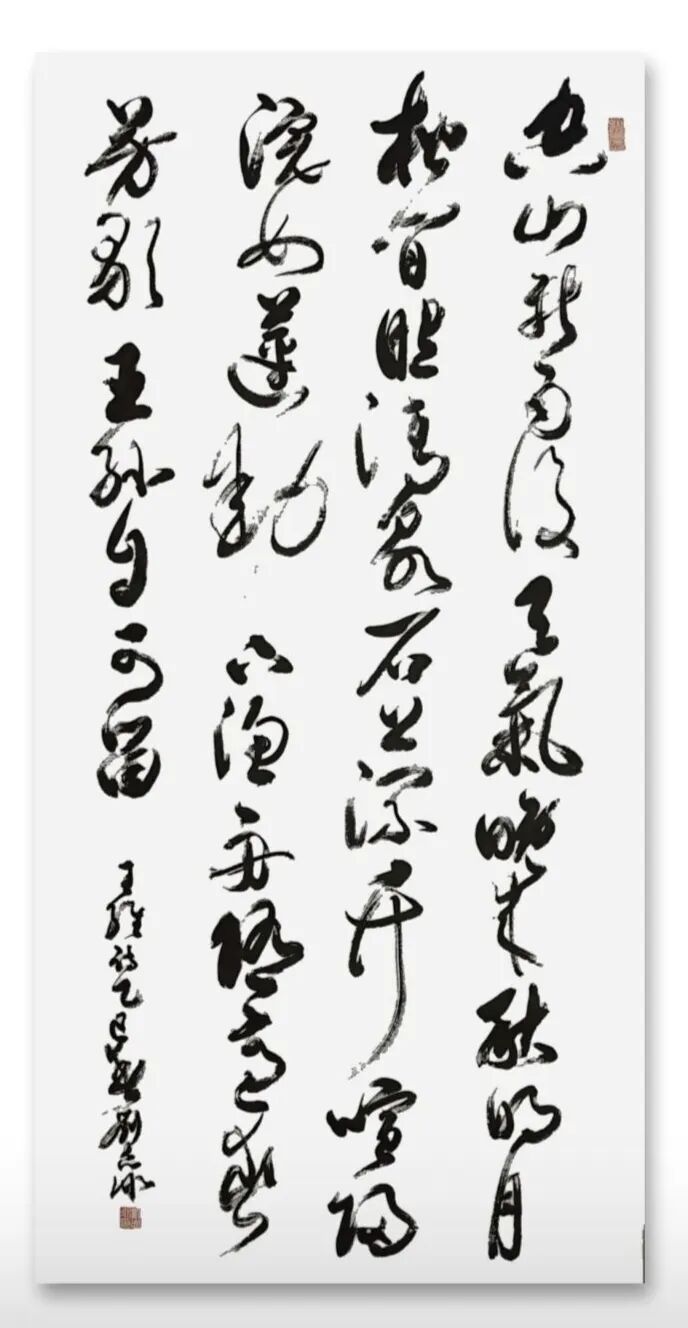 空山新雨後天氣晚來秋明月
松間照清泉石上流竹喧歸
浣女蓮動下漁舟隨意春
芳歇王孫自可留
王維詩乙巳